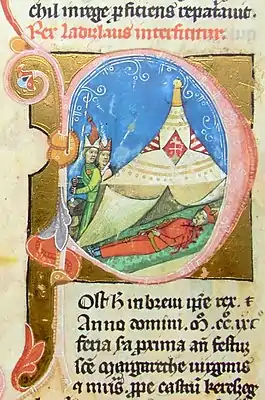 chil inirge pficiens repatauit.
Rex ladizlaus interficitur.
Post h in breui ipse rex. &
Anno domini. M. CC. lxc
feria sa prima an festuz
sce Margarethe uirginis
& mris, ppe castru kereszeg